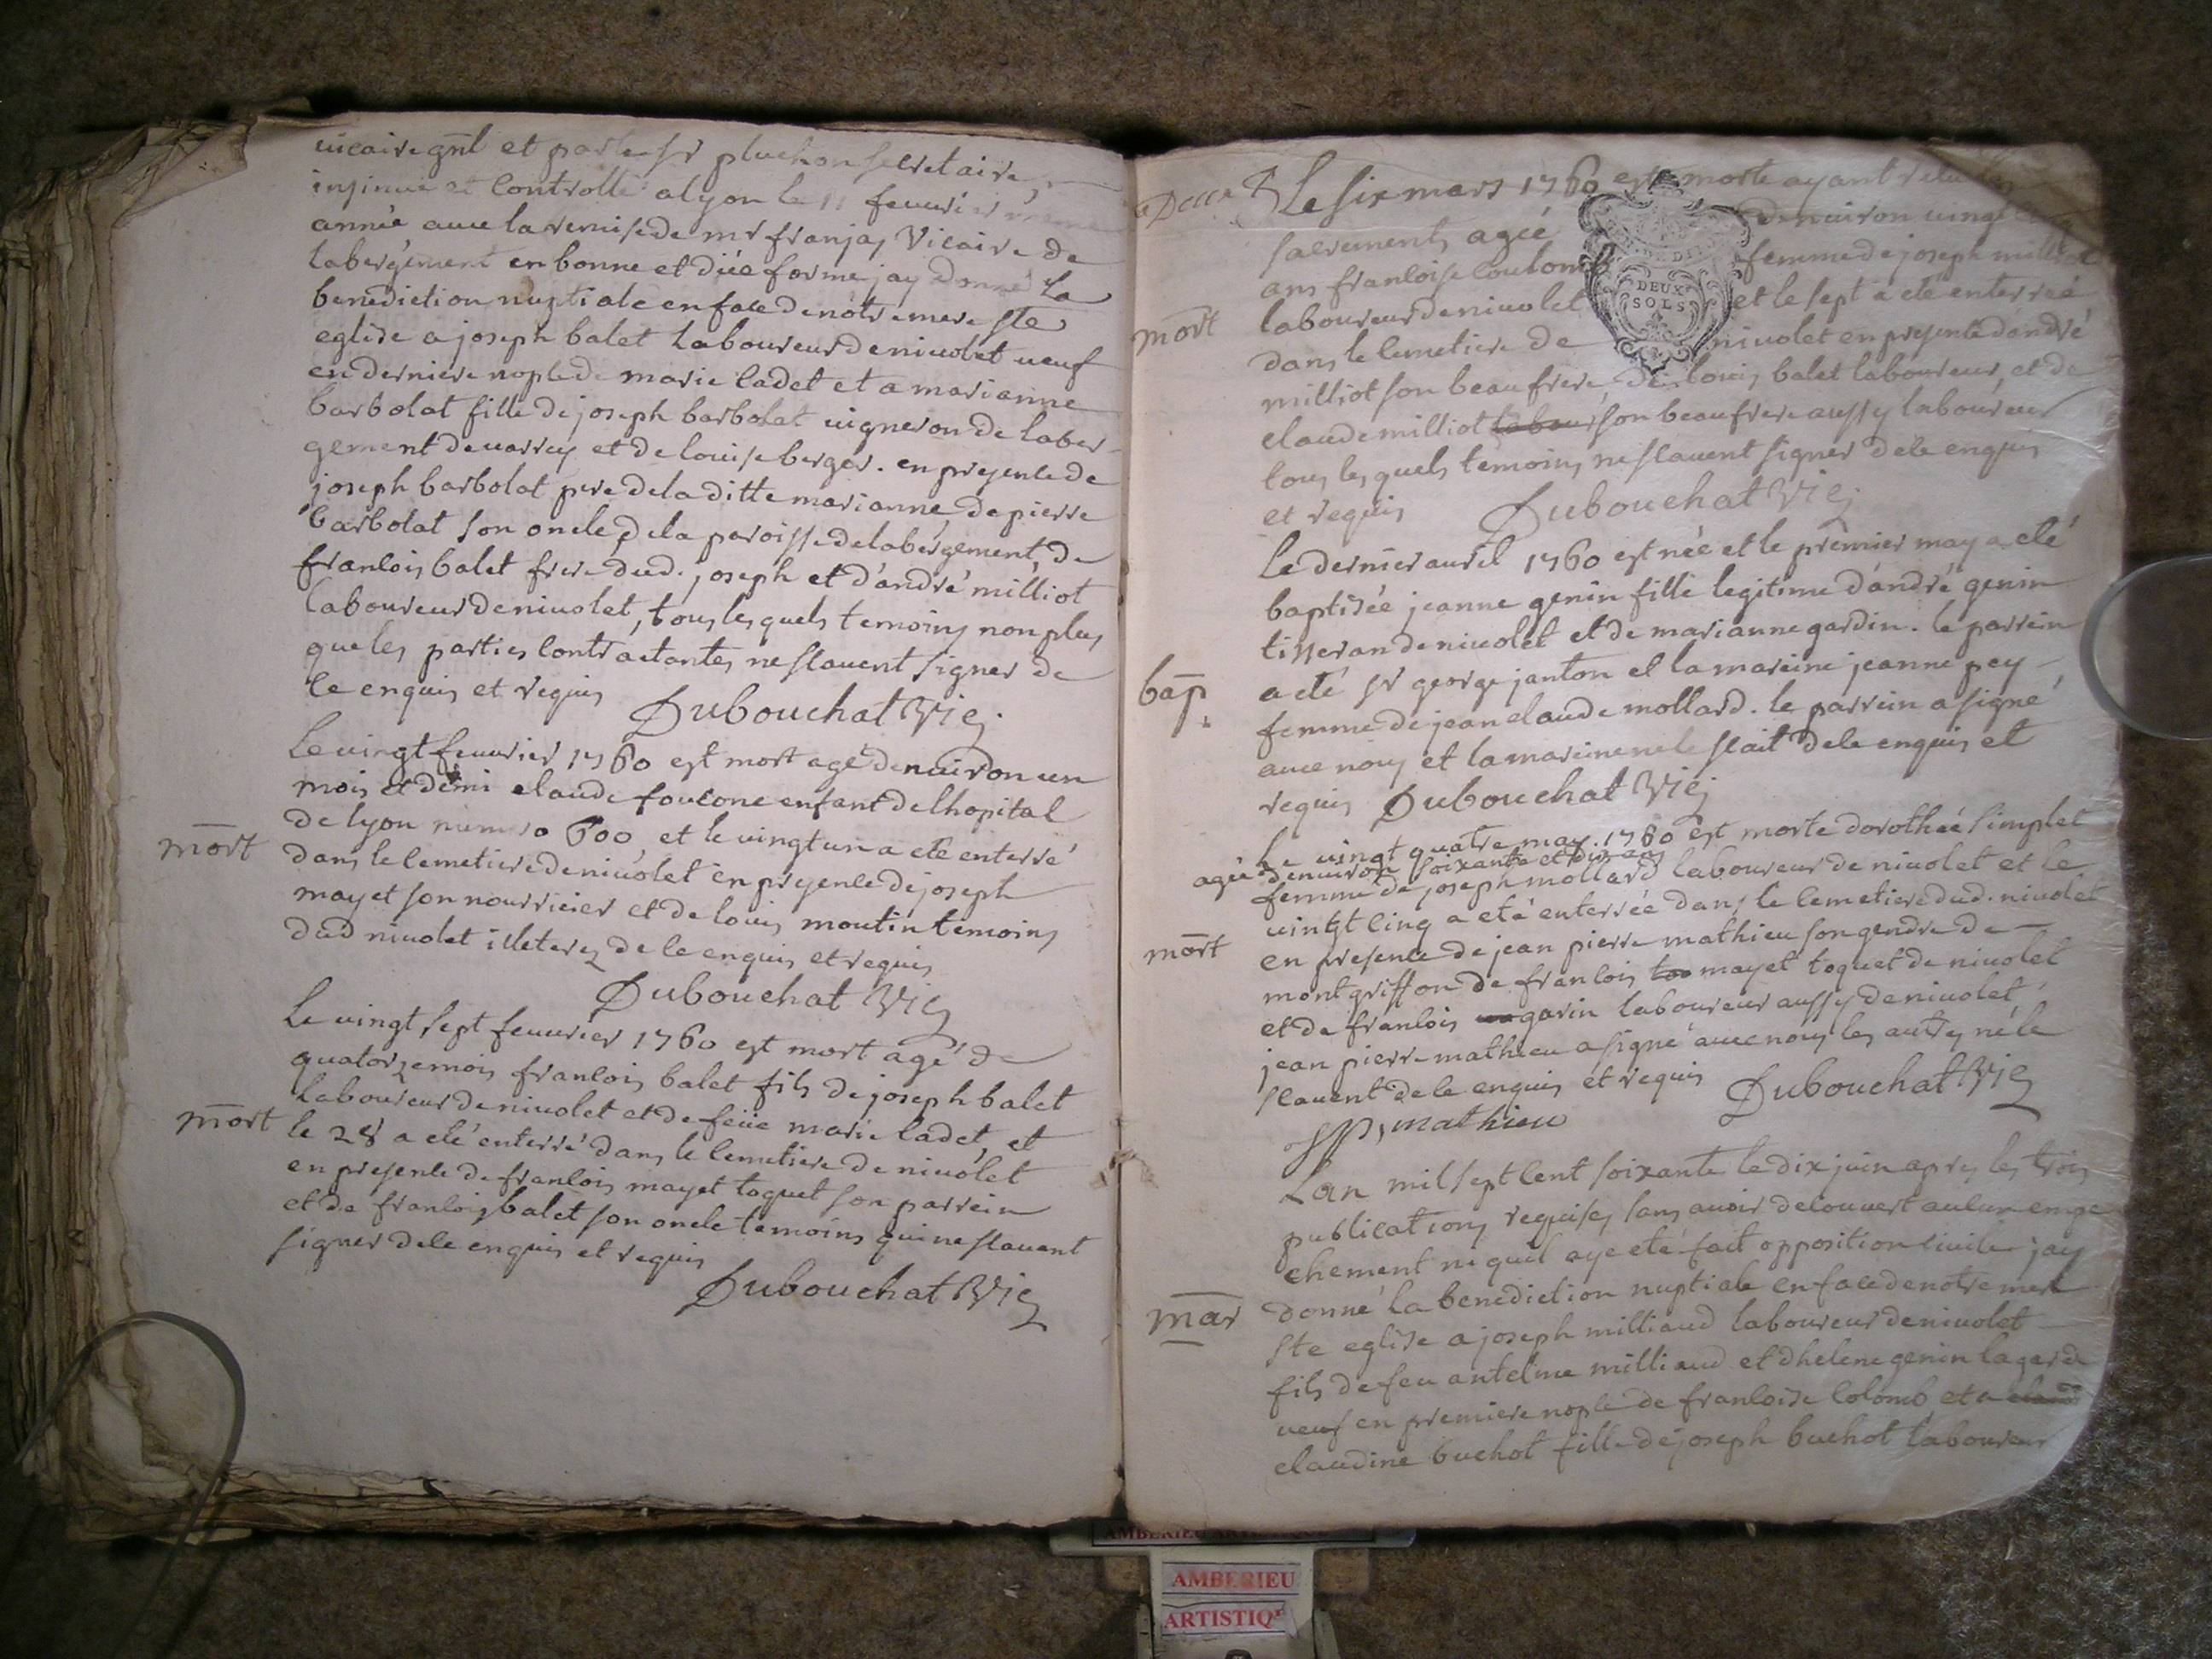 vicaire gñl et par le sr pluchon secretaire,
insinué et Controllé a lyon le 11 feuurier même
année auec la remise de mr franjas Vicaire de
labergement en bonne et düe forme jay donné La
benediction nuptiale en face de nôtre mere ste
eglise a joseph balet Laboureur de niuolet ueuf
en derniere nopce de marie Cadet et a marianne
barbolat fille de joseph barbolat uigneron de laber-
gement de uarrey et de louise berger. en presence de
joseph barbolat pere de la ditte marianne, de pierre
barbolat son oncle de la paroisse de labergement, de
francois balet frere dud. joseph et d'andré milliot
laboureur de niuolet, tous lesquels temoins non plus
que les parties contractantes ne scauent signer de
ce enquis et requis Dubouchat Vic.
Le uingt feuurier 1760 est mort agé denuiron un
mois et demi claude foucone enfant de lhopital
de lyon numero 600, et le uingt un a eté enterré
mort
dans le cemetiere de niuolet en presence de joseph
mayet son nourricier et de louis moutin temoins
dud niuolet illeterez de ce enquis et requis
Dubouchat Vic
Le uingt sept feuurier 1760 est mort agé de
quatorze mois francois balet fils de joseph balet
Laboureur de niuolet et de feüe marie Cadet, et
mort
le 28 a eté enterré dans le cemetiere de niuolet
en presence de francois mayet toquet son parrein
et de francois balet son oncle temoins qui ne scauent
signer de ce enquis et requis
Dubouchat Vic
Le six mars 1760 est morte ayant
sacrements agée denuiron uingt
ans francoise coulomb femme de joseph milliot
laboureur de niuolet et le sept a eté enterreé
mort
DEUX
SOLS
dans le cemetiere de niuolet en presence dandré
milliot son beau frere, de louis balet laboureur, et de
claude milliot labour son beau frere aussy laboureur
tous lesquels temoins ne scauent signer de ce enquis
et requis Dubouchat Vic.
Le dernier auril 1760 est née et le premier may a eté
baptisée jeanne genin fille legitime d'andré genin
tisseran de niuolet et de marianne gardin. le parrein
bap.
a eté sr george janton et la mareine jeanne pey
femme de jean claude mollard. le parrein a signé
auec nous et la mareine ne le scait de ce enquis et
requis Dubouchat Vic
Le uingt quatre may. 1760 est morte dorotheé simplet
ageé denuiron soixante et dix ans
femme de joseph mollard laboureur de niuolet et le
uintgt cinq a eté enterrée dans le cemetiere dud. niuolet
mort
en presence de jean pierre mathieu son gendre de
montgriffon de francois too mayet toquet de niuolet
et de francois garin laboureur aussy de niuolet,
jean pierre mathieu a signé auec nous les autres ne le
scauent de ce enquis et requis Dubouchat Vic
jp, mathieu
Lan mil sept cent soixante le dix juin apres les trois
publications requises sans auoir decouuert aucun empe
chement ni quil aye eté fait opposition ciuile jay
mar
donné la benediction nuptiale en face de notre mere
ste eglise a joseph milliaud laboureur de niuolet
fils de feu antelme milliaud et dhelene genin lagarde
ueuf en premiere nopce de francoise Colomb et a claud
claudine buchot fille de joseph buchot laboureur
AMBERIEU ARTISTIQUE
AMBERIEU
ARTISTIQE